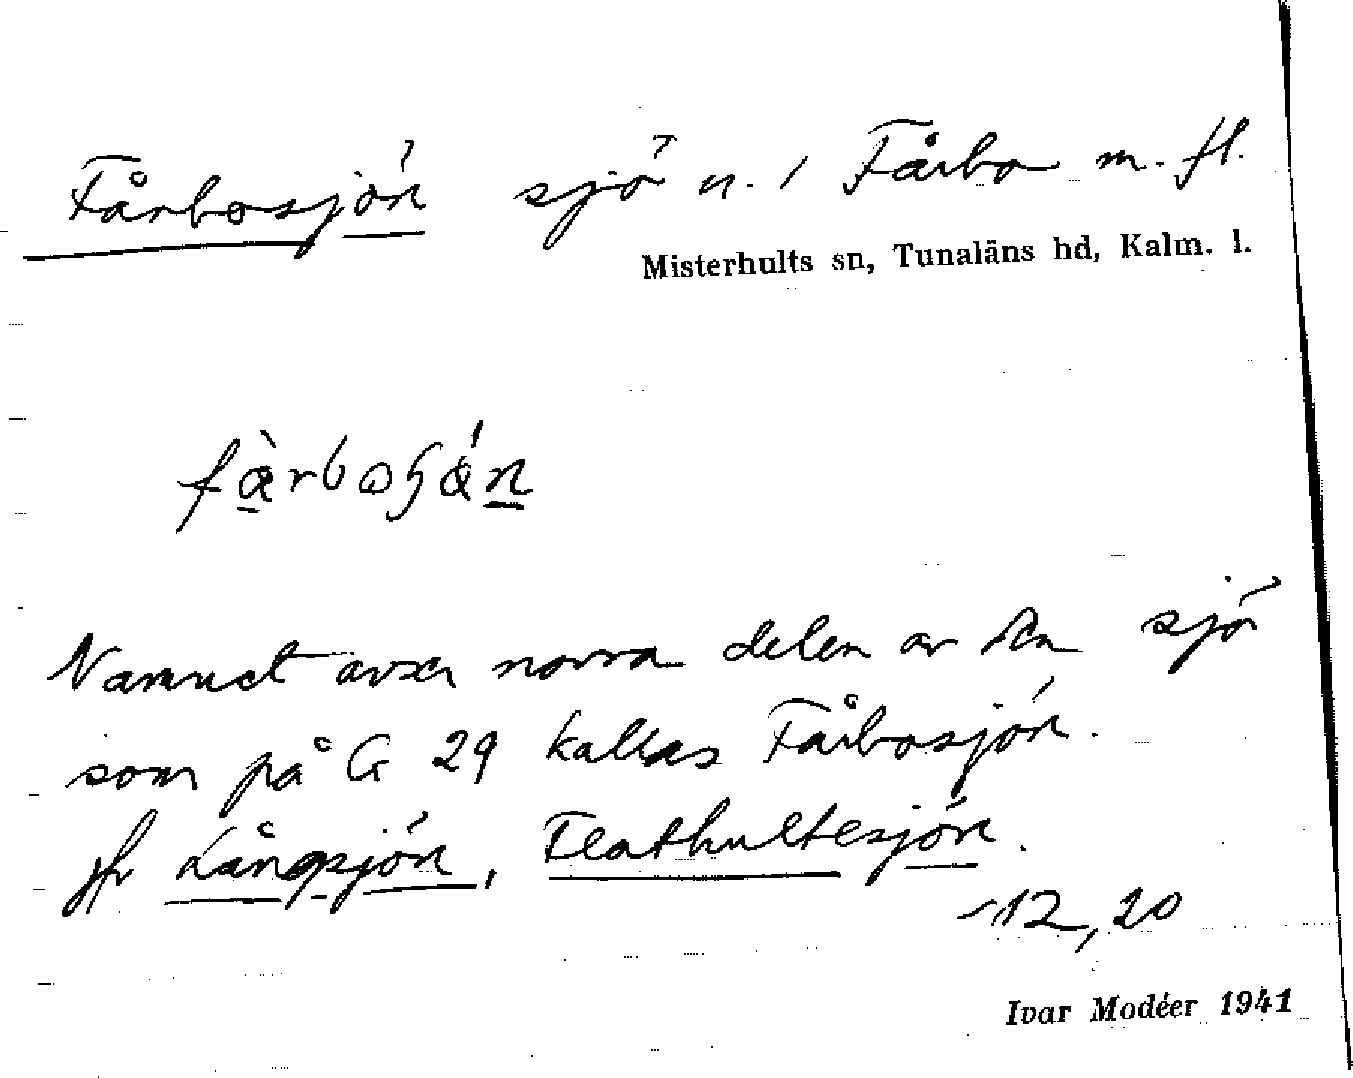 Fårbosjön sjö n. / Fårbo m. fl.
Misterhults sn, Tunaläns hd, Kalm. l.
Namnet avser norra delen av den sjö
som på G 29 kallas Fårbosjön.
Jfr Långsjön, Flathultesjön.
-12, 20
Ivar Modéer 1941